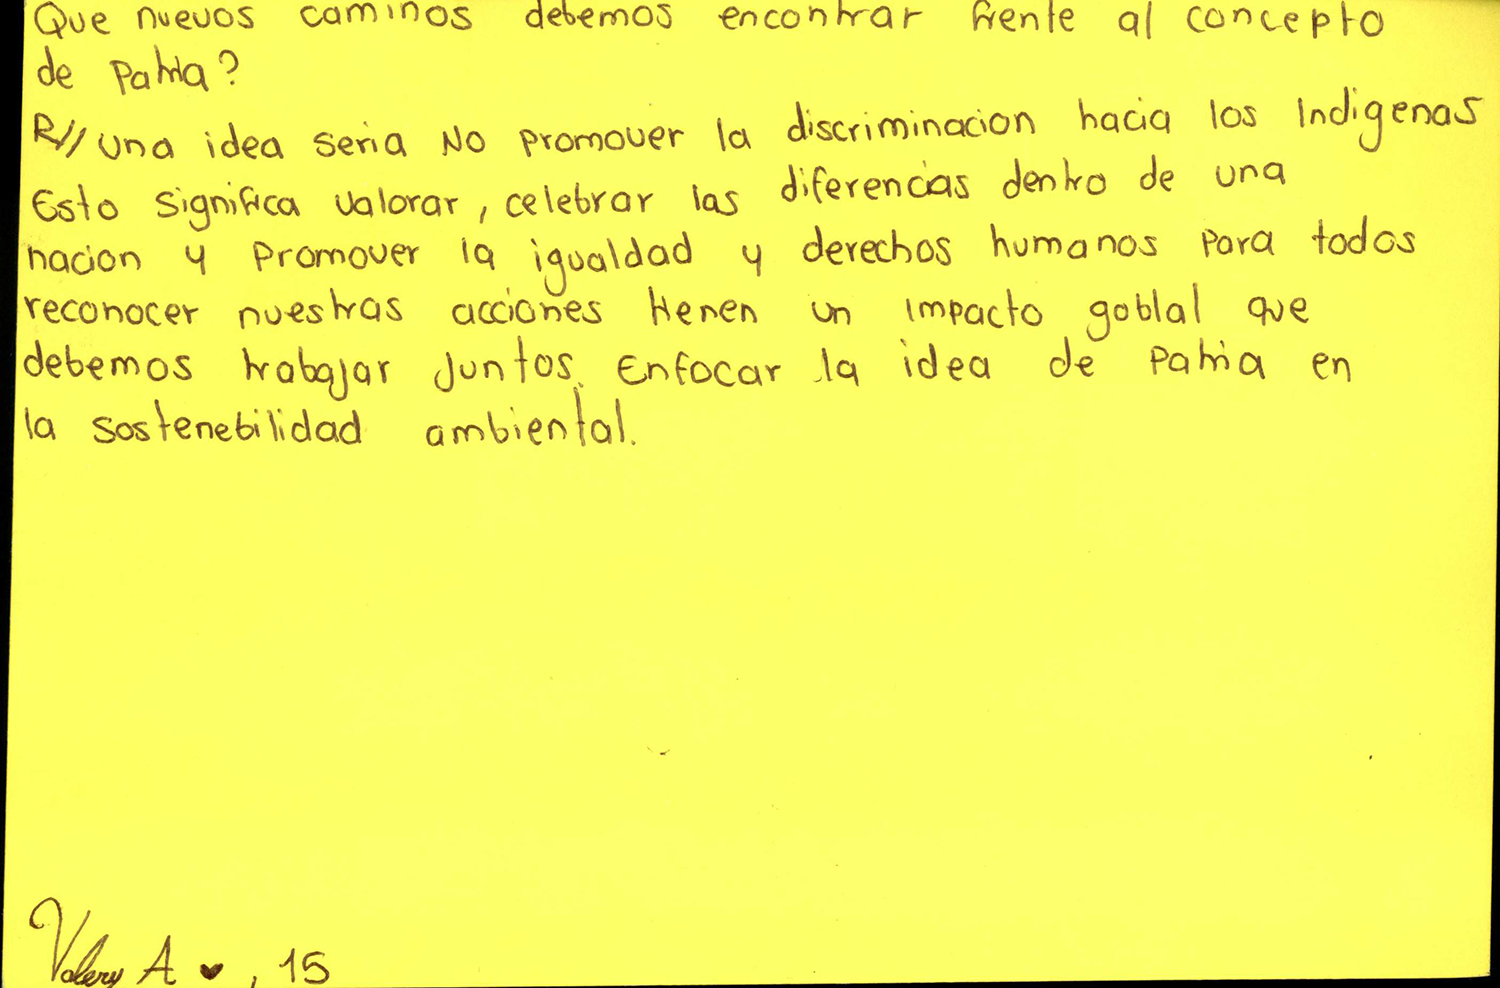 Que nuevos caminos debemos encontrar frente al concepto
de Patria?
R// una idea seria No promover la discriminacion hacia los Indigenas
Esto significa valorar, celebrar las diferencias dentro de una
nacion y promover la igualdad y derechos humanos para todos
reconocer nuestras acciones tienen un impacto goblal que
debemos trabajar juntos. Enfocar la idea de Patria en
la sostenebilidad ambiental.
Valery A ♥, 15